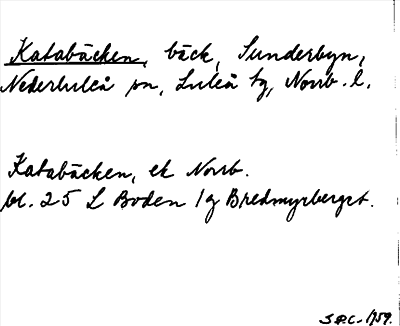 Katabäcken, bäck, Sunderbyn,
Nederluleå sn, Luleå tg, Norrb. l.
Katabäcken, ek Norrb.
bl. 25 L Boden 1g Bredmyrberget.
S.P.C. 1959.